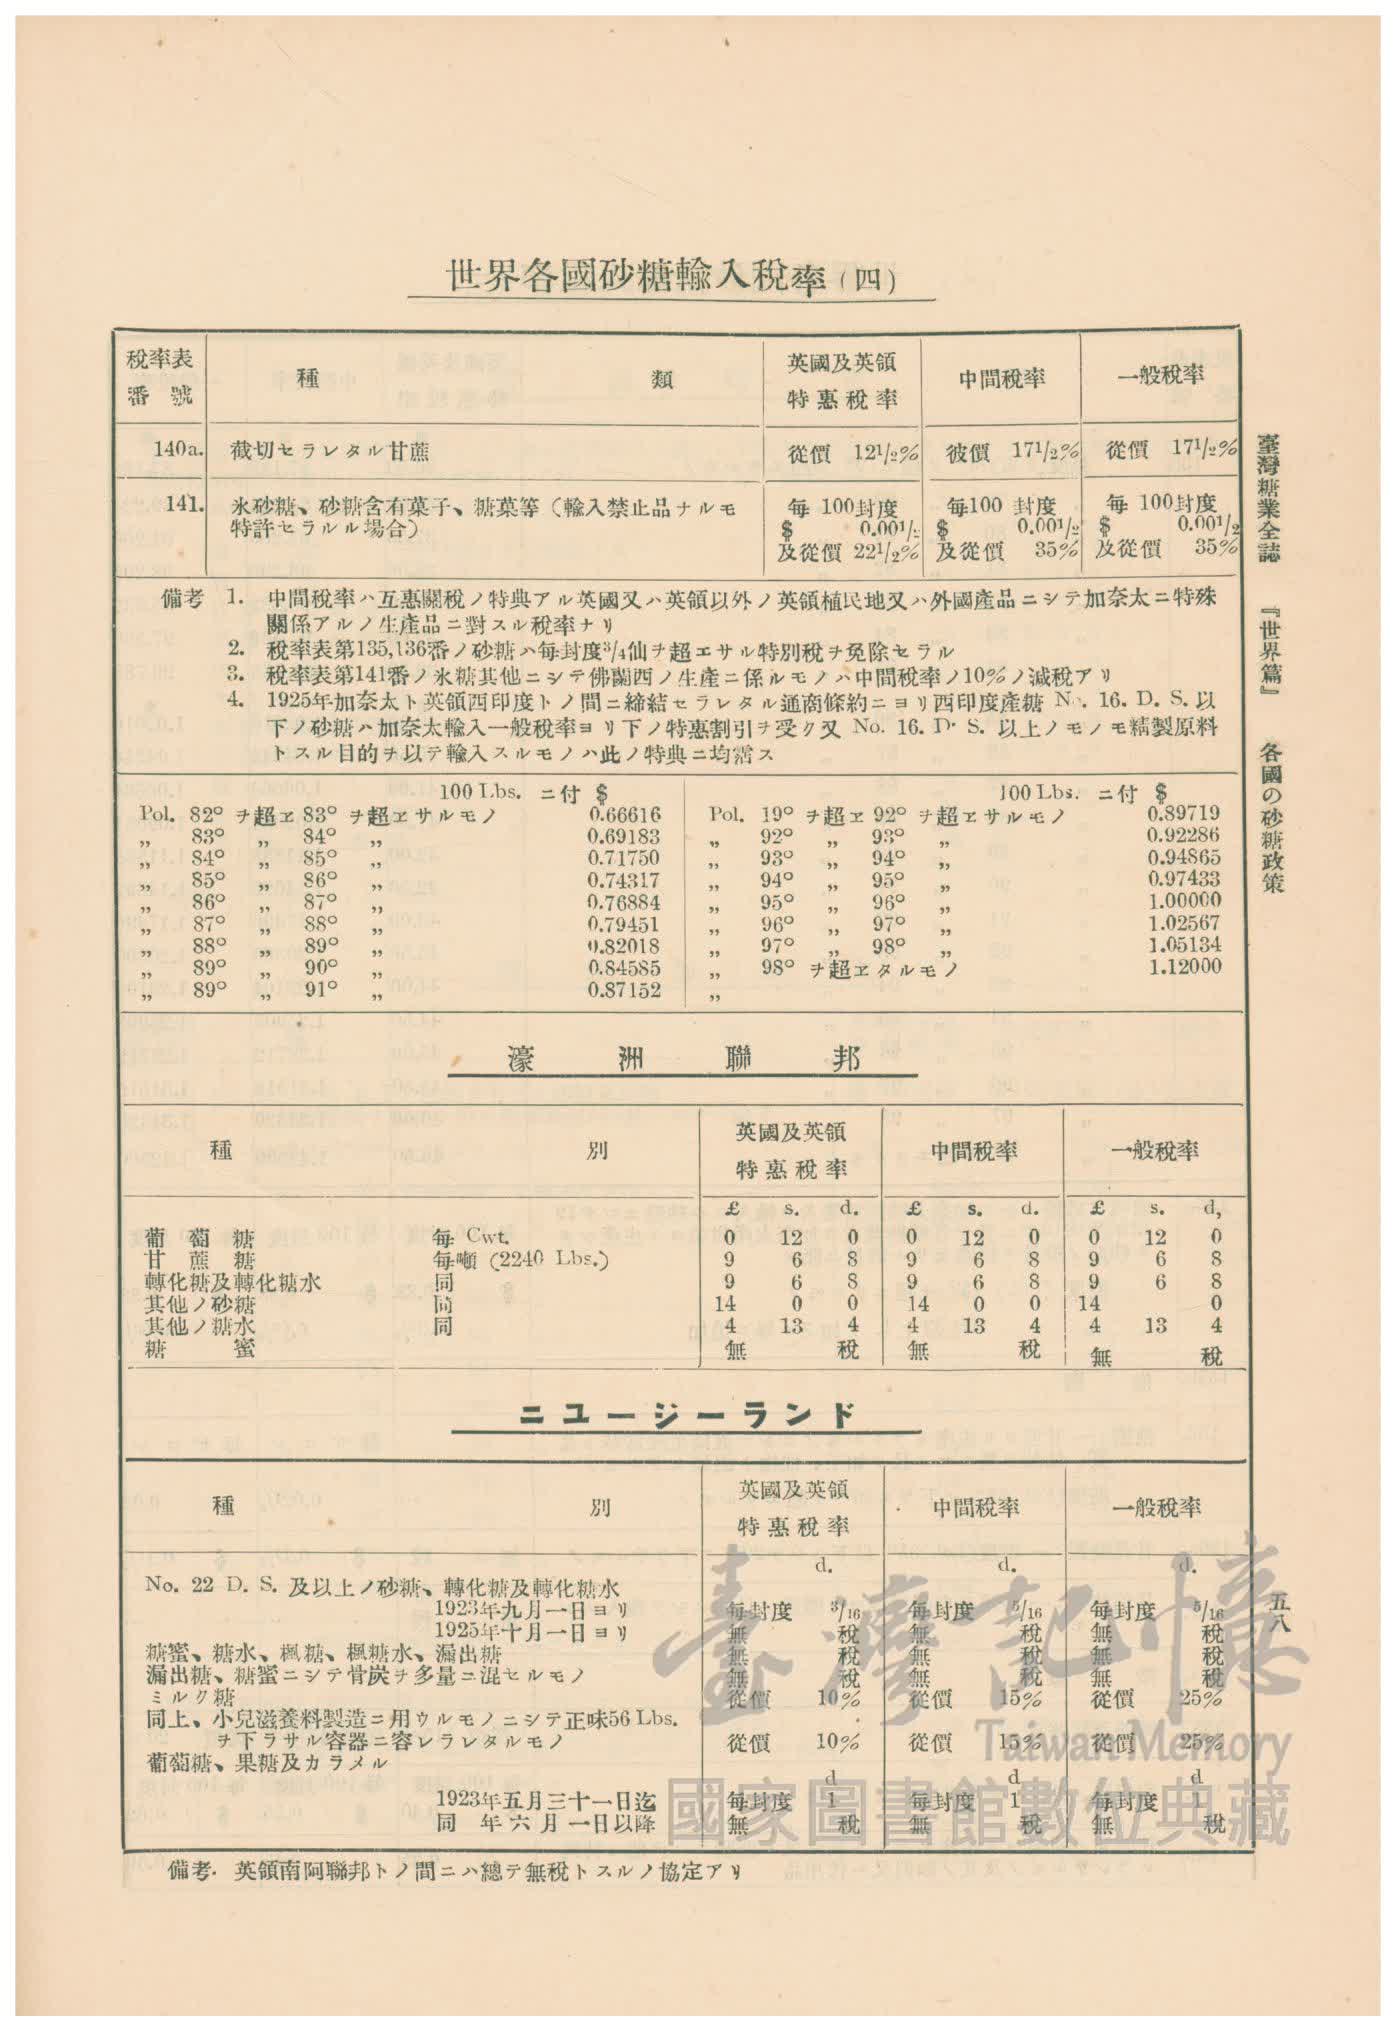 世界各國砂糖輸入稅率(四)
稅率表番號 種類 英國及英領特惠稅率 中間稅率 一般稅率
140a. 截切セラレタル甘蔗 從價 12½% 彼價 17½% 從價 17½%
141. 氷砂糖、砂糖含有菓子、糖菓等(輸入禁止品ナルモ 每 100封度 每100 封度 每 100封度
特許セラルル場合) $ 0.00½ $ 0.00½ $ 0.00½
及從價 22½% 及從價 35% 及從價 35%
備考 1. 中間稅率ハ互惠關稅ノ特典アル英國又ハ英領以外ノ英領植民地又ハ外國產品ニシテ加奈太ニ特殊
關係アルノ生產品ニ對スル稅率ナリ
2. 稅率表第135,136番ノ砂糖ハ每封度¾仙ヲ超エサル特別稅ヲ免除セラル
3. 稅率表第141番ノ氷糖其他ニシテ佛蘭西ノ生產ニ係ルモノハ中間稅率ノ10%ノ減稅アリ
4. 1925年加奈太ト英領西印度トノ間ニ締結セラレタル通商條約ニヨリ西印度產糖 No. 16. D. S. 以
下ノ砂糖ハ加奈太輸入一般稅率ヨリ下ノ特惠割引ヲ受ク又 No. 16. D. S. 以上ノモノモ精製原料
トスル目的ヲ以テ輸入スルモノハ此ノ特典ニ均霑ス
100 Lbs. ニ付 $ 100 Lbs. ニ付 $
Pol. 82° ヲ超ヱ 83° ヲ超ヱサルモノ 0.66616 Pol. 19° ヲ超ヱ 92° ヲ超ヱサルモノ 0.89719
„ 83° „ 84° „ 0.69183 „ 92° „ 93° „ 0.92286
„ 84° „ 85° „ 0.71750 „ 93° „ 94° „ 0.94865
„ 85° „ 86° „ 0.74317 „ 94° „ 95° „ 0.97433
„ 86° „ 87° „ 0.76884 „ 95° „ 96° „ 1.00000
„ 87° „ 88° „ 0.79451 „ 96° „ 97° „ 1.02567
„ 88° „ 89° „ 0.82018 „ 97° „ 98° „ 1.05134
„ 89° „ 90° „ 0.84585 „ 98° ヲ超ヱタルモノ 1.12000
„ 89° „ 91° „ 0.87152 „
濠洲聯邦
種別 英國及英領特惠稅率 中間稅率 一般稅率
£ s. d. £ s. d. £ s. d,
葡萄糖 每 Cwt. 0 12 0 0 12 0 0 12 0
甘蔗糖 每噸 (2240 Lbs.) 9 6 8 9 6 8 9 6 8
轉化糖及轉化糖水 同 9 6 8 9 6 8 9 6 8
其他ノ砂糖 同 14 0 0 14 0 0 14 0
其他ノ糖水 同 4 13 4 4 13 4 4 13 4
糖蜜 無稅 無稅 無稅
ニユージーランド
種別 英國及英領特惠稅率 中間稅率 一般稅率
d. d. d.
No. 22 D. S. 及以上ノ砂糖、轉化糖及轉化糖水
1923年九月一日ヨリ 每封度 3/16 每封度 5/16 每封度 5/16
1925年十月一日ヨリ 無稅 無稅 無稅
糖蜜、糖水、楓糖、楓糖水、漏出糖 無稅 無稅 無稅
漏出糖、糖蜜ニシテ骨炭ヲ多量ニ混セルモノ 無稅 無稅 無稅
ミルク糖 從價 10% 從價 15% 從價 25%
同上、小兒滋養料製造ニ用ウルモノニシテ正味56 Lbs.
ヲ下ラサル容器ニ容レラレタルモノ 從價 10% 從價 15% 從價 25%
葡萄糖、果糖及カラメル
d d d
1923年五月三十一日迄 每封度 1 每封度 1 每封度 1
同 年六月一日以降 無稅 無稅 無稅
備考. 英領南阿聯邦トノ間ニハ總テ無稅トスルノ協定アリ
臺灣糖業全誌 『世界篇』 各國の砂糖政策
五八
臺灣記憶
Taiwan Memory
國家圖書館數位典藏